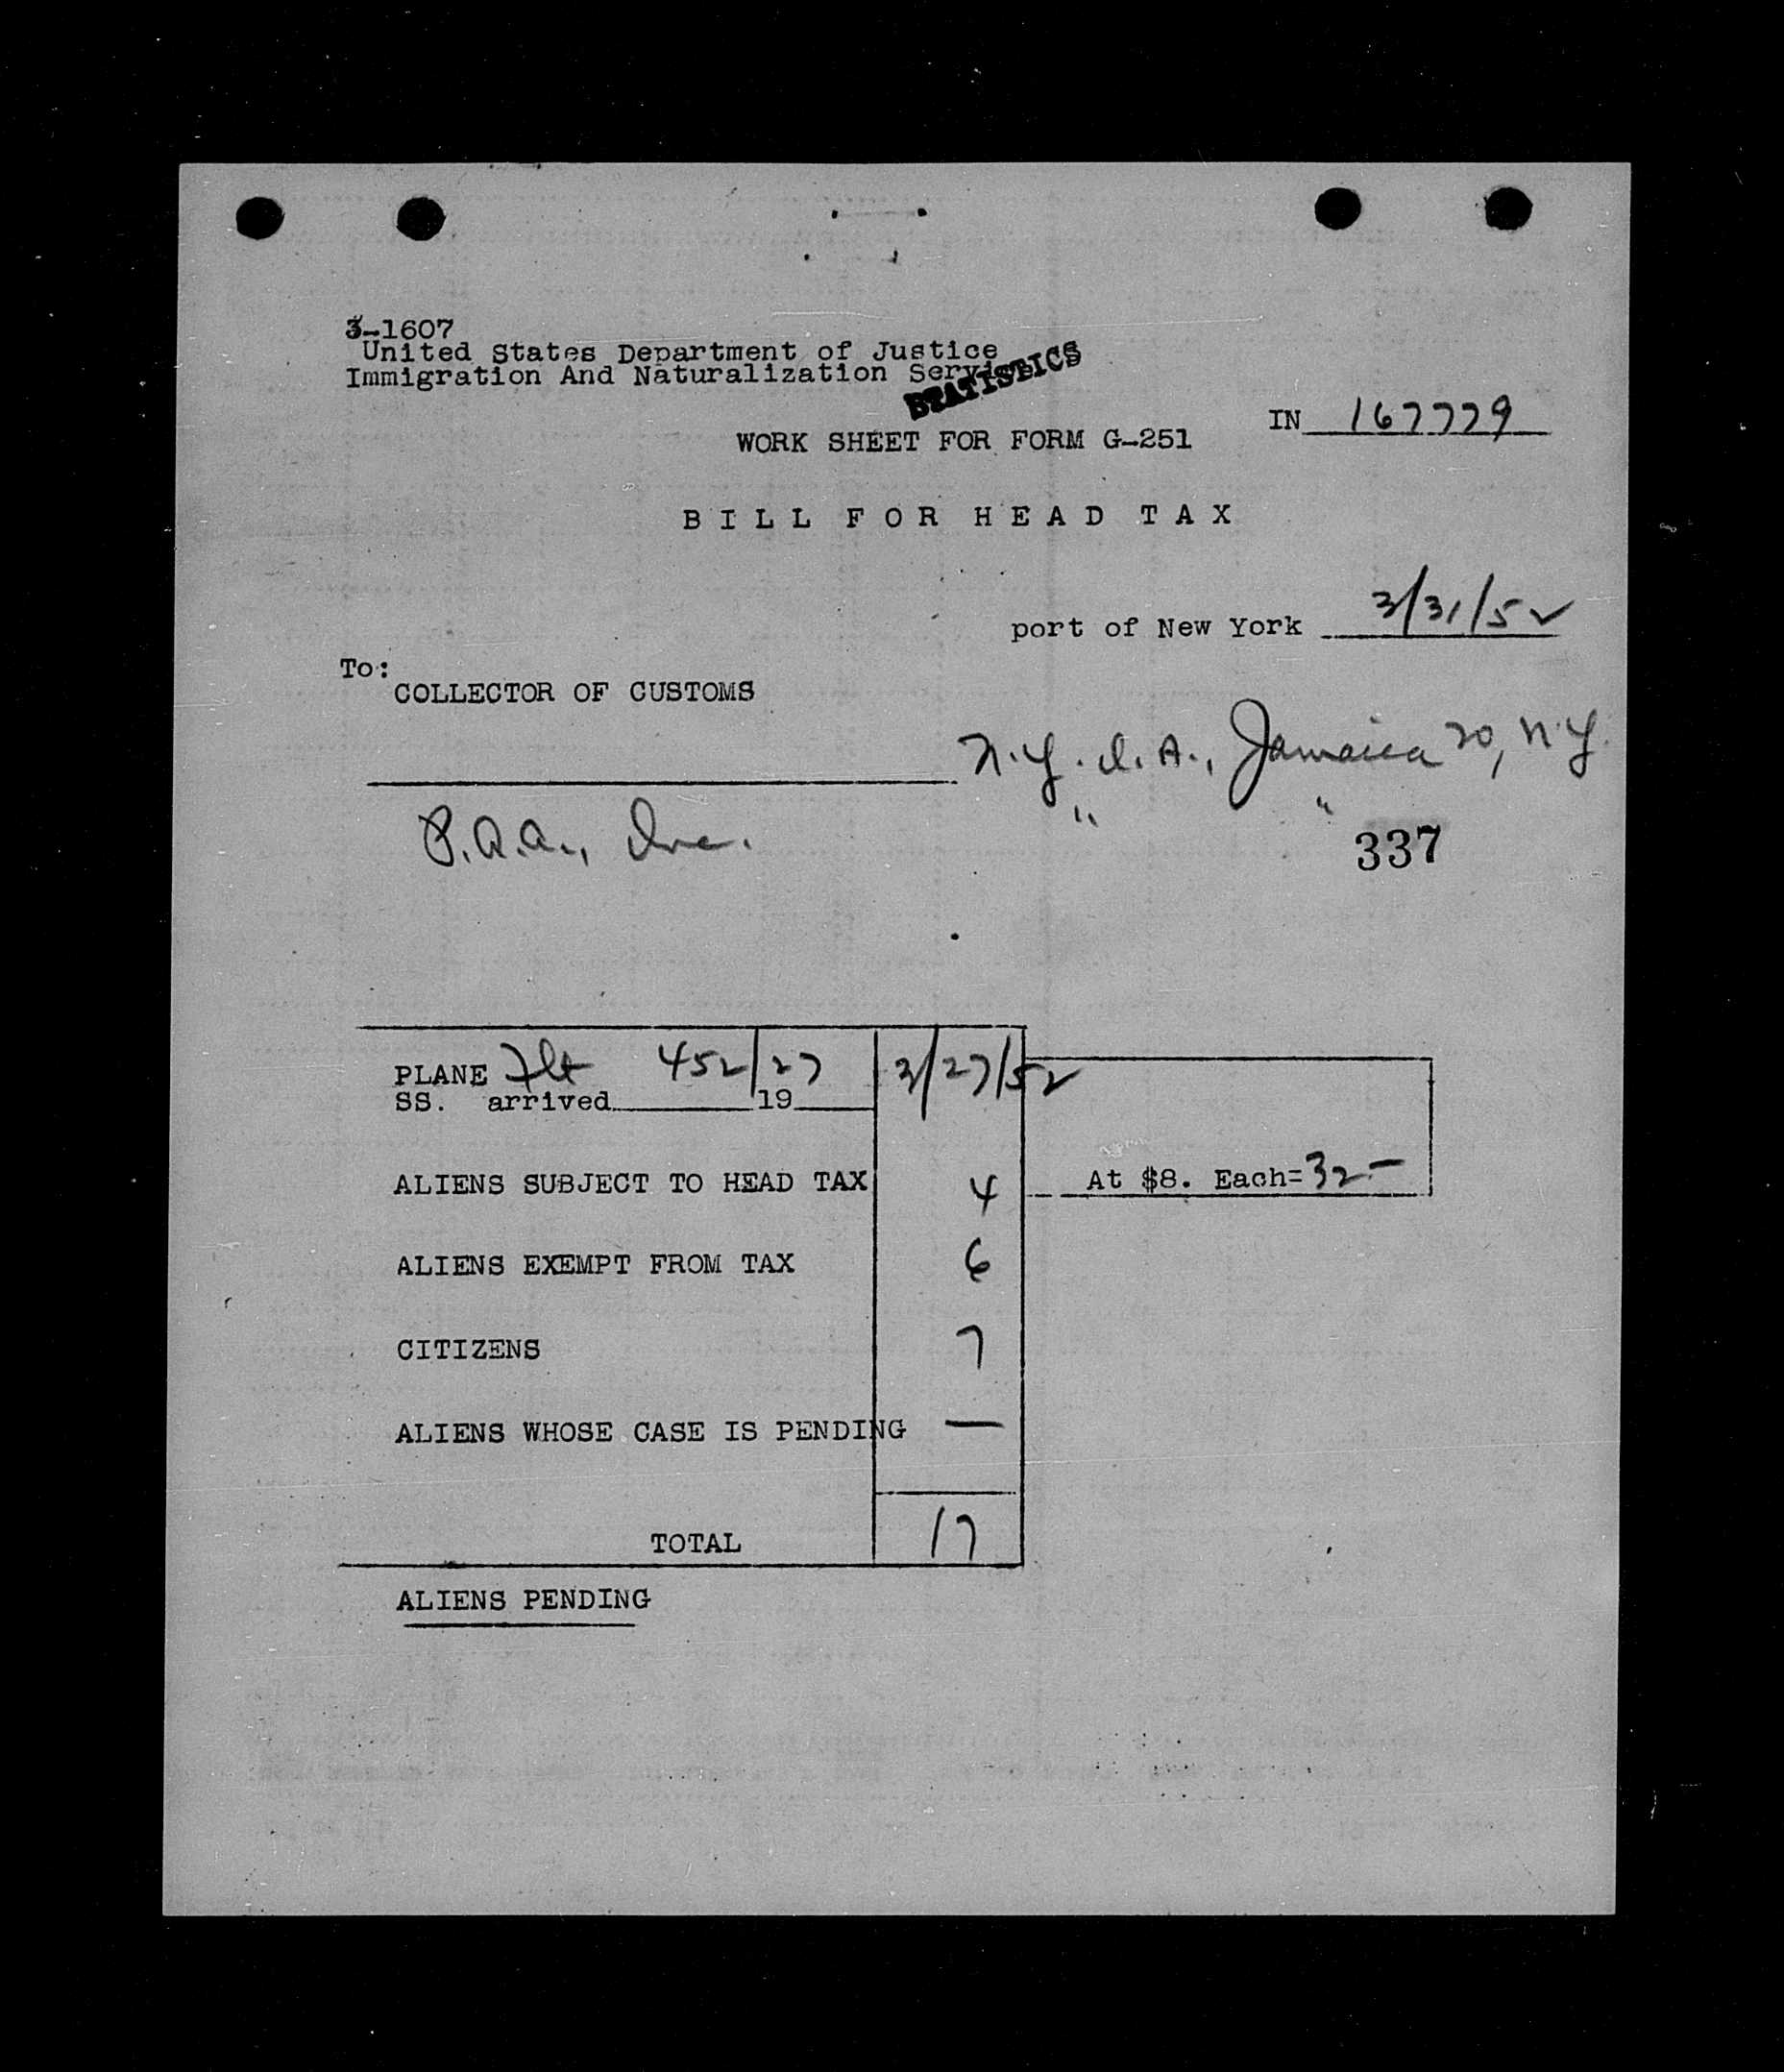 3-1607
United States Department of Justice
Immigration And Naturalization Service
STATISTICS
IN 167779
WORK SHEET FOR FORM G-251
BILL FOR HEAD TAX
port of New York 3/31/52
To:
COLLECTOR OF CUSTOMS
N.Y.I.A., Jamaica 30, N.Y.
P.A.A., Inc. " "
337
PLANE Flt 452/27 3/27/52
SS. arrived 19
ALIENS SUBJECT TO HEAD TAX 4 At $8. Each=32-
ALIENS EXEMPT FROM TAX 6
CITIZENS 7
ALIENS WHOSE CASE IS PENDING —
TOTAL 17
ALIENS PENDING